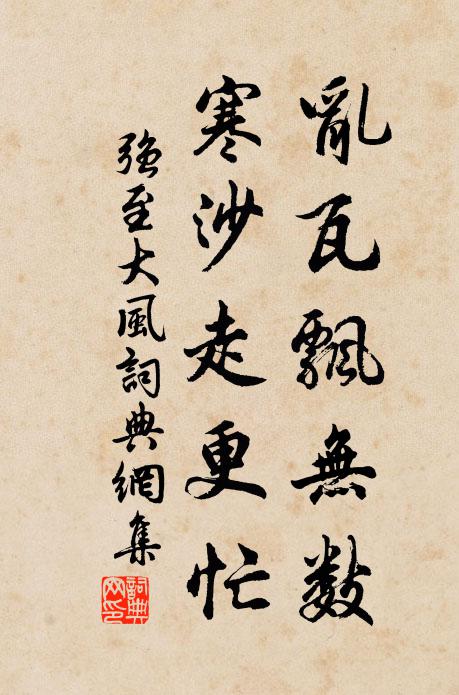 亂瓦飄無数
寒沙走更忙
強至大風詞典網集
詞典網印